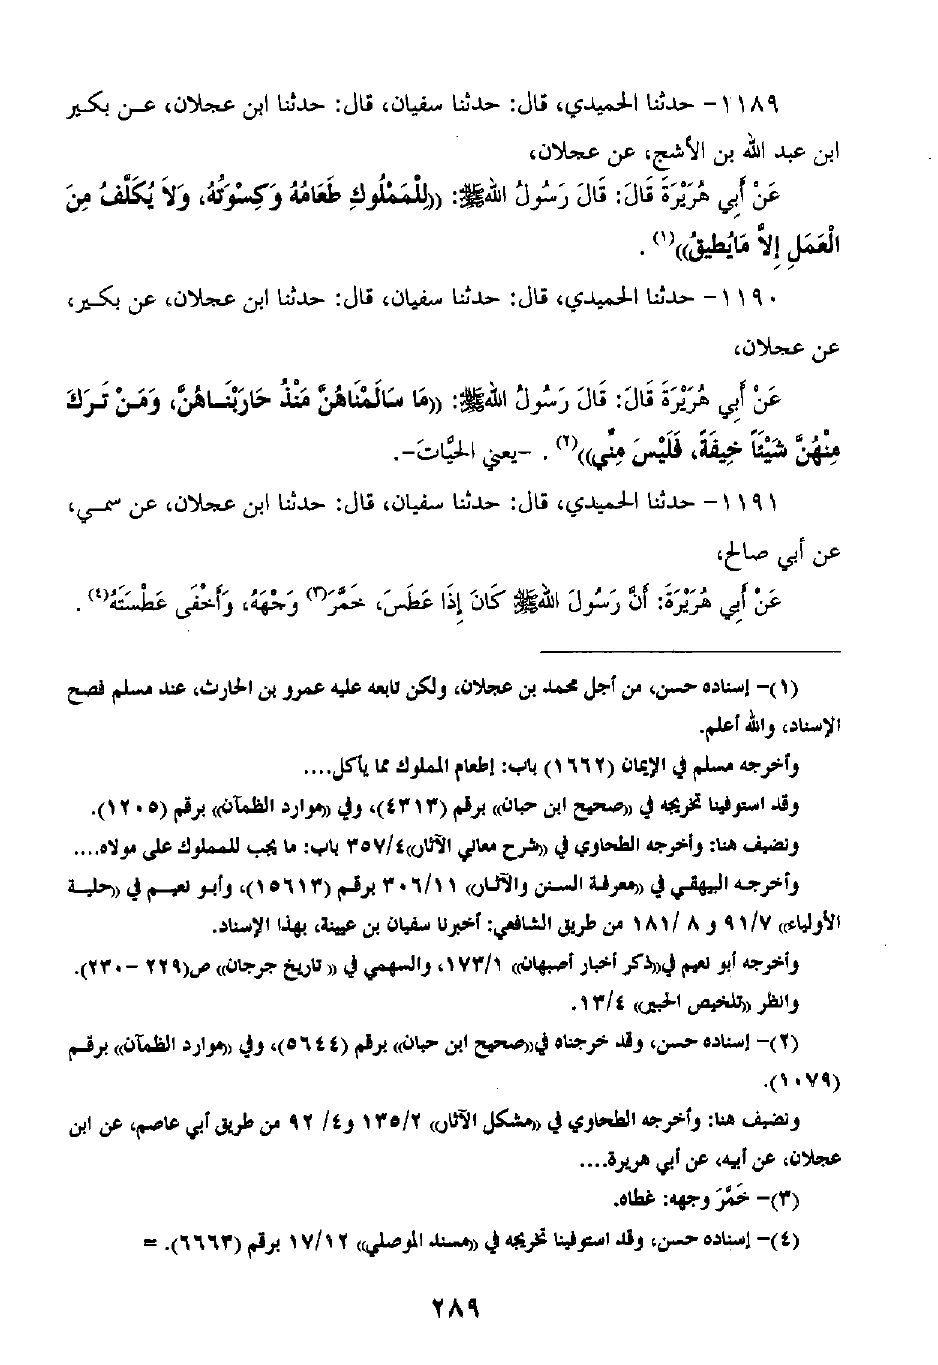 ١١٨٩- حدثنا الحميدي، قال: حدثنا سفيان، قال: حدثنا ابن عجلان، عـن بكـير
ابن عبد الله بن الأشج، عن عجلان،
عَنْ أَبِي هُرَيْرَةَ قَالَ: قَالَ رَسُولُ اللهِ ﷺ: ((لِلْمَمْلُوكِ طَعَامُهُ وَكِسْوَتُهُ، وَلاَ يُكَلَّفُ مِنَ
الْعَمَلِ إِلاَّ مَايُطِيقُ))(١) .
١١٩٠- حدثنا الحميدي، قال: حدثنا سفيان، قال: حدثنا ابن عجلان، عن بكـير،
عن عجلان،
عَنْ أَبِي هُرَيْرَةَ قَالَ: قَالَ رَسُولُ اللهِ ﷺ: ((مَا سَالَمْنَاهُنَّ مَنْذُ حَارَبْنَـاهُنَّ، وَمَـنْ تَـرَكَ
مِنْهُنَّ شَيْئاً خِيفَةً، فَلَيْسَ مِنِّي))(٢) . -يعني الحيَّاتَ-.
١١٩١- حدثنا الحميدي، قال: حدثنا سفيان، قال: حدثنا ابن عجلان، عن سمـي،
عن أبي صالح،
عَنْ أَبِي هُرَيْرَةَ: أَنَّ رَسُولَ اللهِ ﷺ كَانَ إِذَا عَطَسَ، خَمَّرَ(٣) وَجْهَهُ، وَأَخْفَى عَطْسَتَهُ(٤) .
(١)- إسناده حسن، من أجل محمد بن عجلان، ولكن تابعه عليه عمرو بن الحارث، عند مسلم فصح
الإسناد، والله أعلم.
وأخرجه مسلم في الإيمان (١٦٦٢) باب: إطعام المملوك مما يأكل....
وقد استوفينا تخريجه في ((صحيح ابن حبان)) برقم (٤٣١٣)، وفي ((موارد الظمآن)) برقم (١٢٠٥).
ونضيف هنا: وأخرجه الطحاوي في ((شرح معاني الآثار))٣٥٧/٤ باب: ما يجب للمملوك على مولاه....
وأخرجـه البيهقـي في ((معرفـة السـنن والآثـار)) ٣٠٦/١١ برقم (١٥٦١٣)، وأبـو نعيـم في ((حليـة
الأولياء)) ٩١/٧ و ٨ /١٨١ من طريق الشافعي: أخبرنا سفيان بن عيينة، بهذا الإسناد.
وأخرجه أبو نعيم في((ذكر أخبار أصبهان)) ١٧٣/١، والسهمي في (( تاريخ جرجان)) ص(٢٢٩ -٢٣٠).
وانظر ((تلخيص الحبير)) ١٣/٤.
(٢)- إسناده حسن، وقد خرجناه في((صحيح ابن حبان)) برقم (٥٦٤٤)، وفي ((موارد الظمآن)) برقـم
(١٠٧٩).
ونضيف هنا: وأخرجه الطحاوي في ((مشكل الآثار)) ١٣٥/٢ و٤/ ٩٢ من طريق أبي عاصم، عن ابن
عجلان، عن أبيه، عن أبي هريرة....
(٣)- خَمَّرَ وجهه: غطاه.
(٤)- إسناده حسن، وقد استوفينا تخريجه في ((مسند الموصلي)) ١٧/١٢ برقم (٦٦٦٣). =
٢٨٩